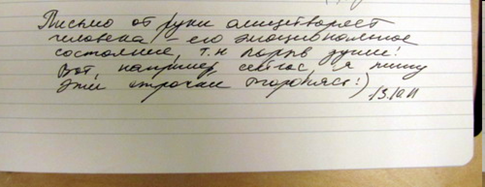 Письмо от руки олицетворяет
человека, его эмоциональное
состояние, т.н порыв души!
Вот например, сейчас, я пишу
эти строчки торопясь:)